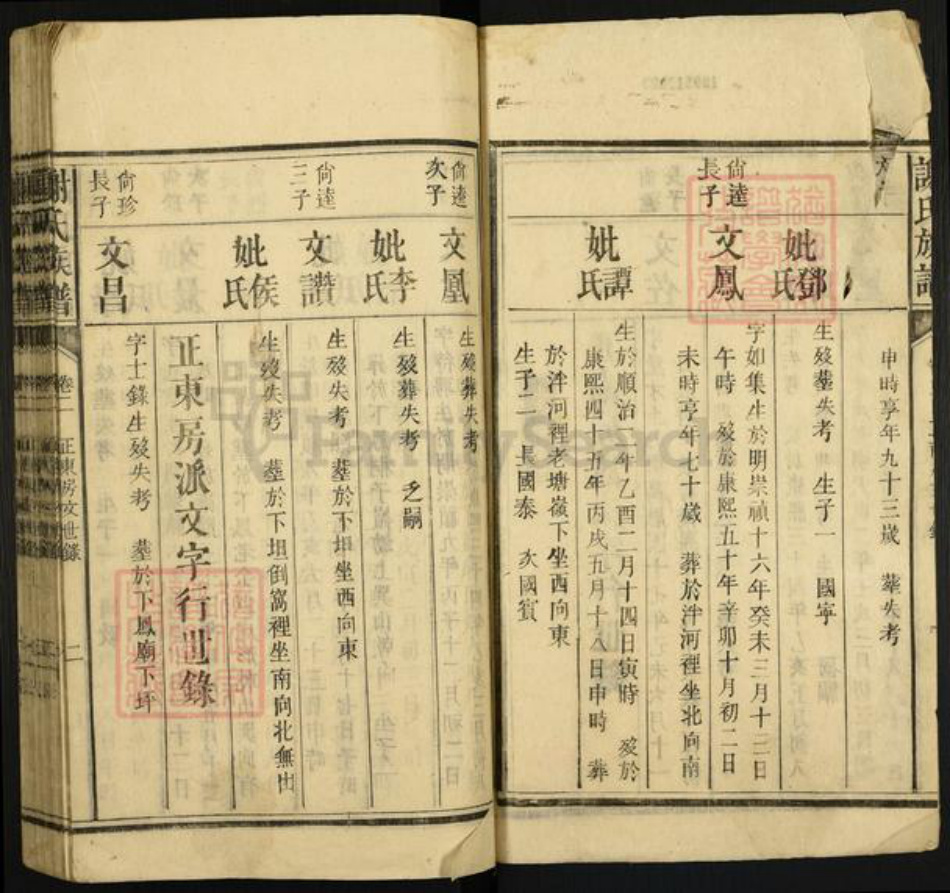 謝氏族譜
申時享年九十三歲 葬失考
妣鄧氏
生歿塟失考 生子一 國寧
尙逵長子
文鳳
字如集生於明崇禎十六年癸未三月十三日
午時 歿於康熙五十年辛卯十月初二日
未時亨年七十歲 葬於泮河裡坐北向南
妣譚氏
生於順治二年乙酉二月十四日寅時 歿於
康熙四十五年丙戌五月十八日申時 葬
於泮河裡老塘嶺下坐西向東
生子二 長國泰 次國賓
尙逵次子
文凰
生歿葬失考
妣李氏
生歿葬失考 乏嗣
尙逵三子
文讚
生歿失考 塟於下坦坐西向東
妣侯氏
生歿失考 塟於下坦倒窩裡坐南向北無出
正東房派文字行世錄
尙珍長子
文昌
字士錄生歿失考 塟於下鳳廟下坪
謝氏族譜
卷二
正東房文世錄
二
FamilySearch